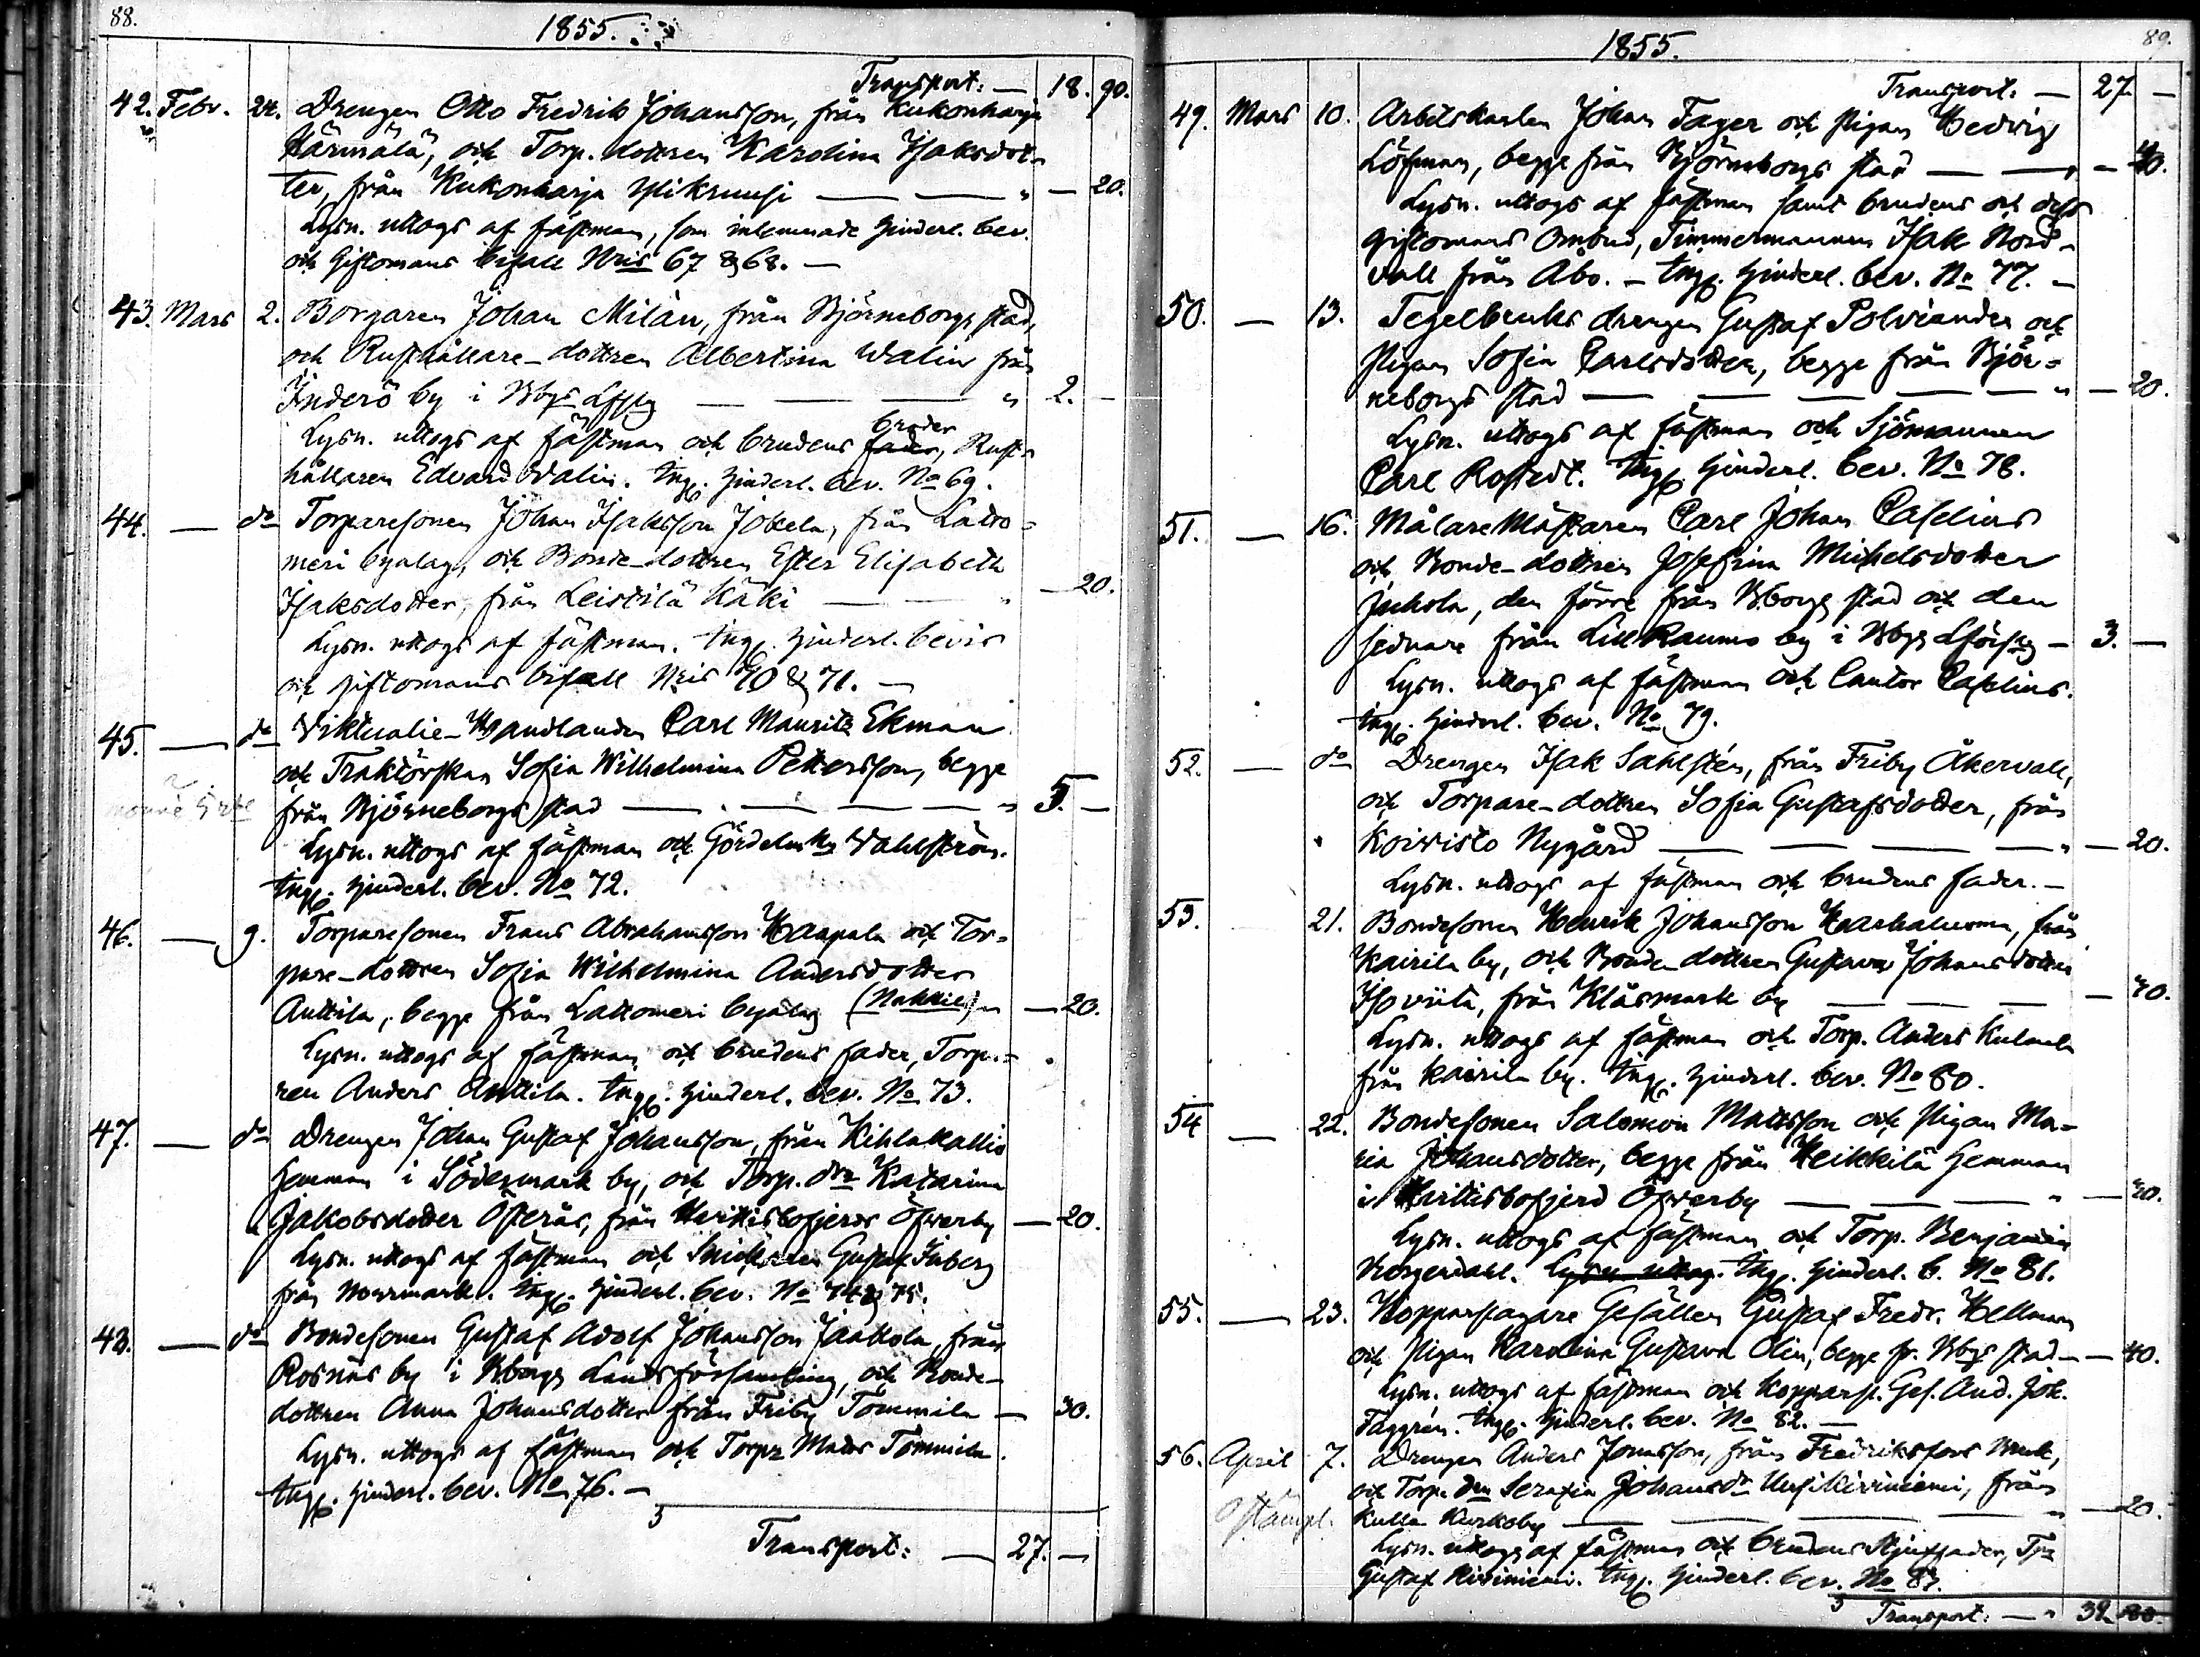 88.
1855.
Transport: — 18. 90.
42. Febr. 24. Drengen Otto Fredrik Johansson, från Kukonharja
Härmälä, och Torp. dottren Karolina Isaksdot-
ter, från Kukonharja — — " — 20.
Lysn. uttogs af fästman, som inlemnade hinderl. bev.
och Giftomans bifall Nris 67 & 68. —
43. Mars 2. Borgaren Johan Milàn, från Björneborgs stad,
och Rusthållare-dottren Albertina Walin från
Inderö by i Bbgs Lfsg — — — " 2. —
broder
Lysn. uttogs af fästman och brudens fader, Rust-
hållaren Edvard Walin. Ingg. hinderl. bev. No 69.
44. — do Torparesonen Johan Isaksson Jokela, från Latto-
meri byalag, och Bonde-dottren Ester Elisabeth
Isaksdotter, från Leistilä Käki — — " — 20.
Lysn. uttogs af fästman. Ingg. hinderl. bevis
och giftomans bifall Nris 70 & 71. —
45. — do Viktualie-Handlanden Carl Maurits Ekman
och Traktörskan Sofia Wilhelmina Pettersson, begge
från Björneborgs stad — — — — " 5. —
Lysn. uttogs af fästman och Wahlström.
Ingg. hinderl. bev. No 72.
46. — 9. Torparesonen Frans Abrahamsson Haapala och Tor-
pare-dottren Sofia Wilhelmina Andersdotter
Anttila, begge från Lattomeri byalag (Nakkila) " — 20.
Lysn. uttogs af fästman och brudens fader, Torpa-
ren Anders Anttila. Ingg. hinderl. bev. No 73.
47. — do Drengen Johan Gustaf Johansson, från Kihlakallio
hemman i Södermark by, och Torp. dtr Katarina
Jakobsdotter Österås, från Hvittisbofjerds Öfverby — 20.
Lysn. uttogs af fästman och Snickaren Gustaf Inberg
från Norrmark. Ingg. hinderl. bev. No 74 & 75.
48. — do Bondesonen Gustaf Adolf Johansson Jaakola, från
Rosnäs by i Bborgs Landsförsamling, och Bonde-
dottren Anna Johansdotter från Friby Tommila — 30.
Lysn. uttogs af fästman och Torpr Matts Tommila.
Ingg. hinderl. bev. No 76. —
Transport: — 27. —
89.
1855.
Transport: — 27 —
49. Mars 10. Arbetskarlen Johan Fager och Pigan Hedvig
Löfman, begge från Björneborgs stad — — " — 40.
Lysn. uttogs af fästman samt brudens och dess
giftomans Ombud, Timmermannen Isak Nord-
vall från Åbo. — Ingg. hinderl. bev. No 77. —
50. — 13. Tegelbruks drengen Gustaf Polviander och
Pigan Sofia Carlsdotter, begge från Björ-
neborgs stad — — — — — " — 20.
Lysn. uttogs af fästman och Sjömannen
Carl Rostedt. Ingg. hinderl. bev. No 78.
51. — 16. MålareMästaren Carl Johan Caselius
och Bonde-dottren Josefina Michelsdotter
Juhola, den förre från Bborgs stad och den
sednare från Lill Raumo by i Bbgs Lförsg — 3. —
Lysn. uttogs af fästman och Cantor Caselius.
Ingg. hinderl. bev. No 79.
52. — do Drengen Isak Sahlstén, från Friby Åkervall,
och Torpare-dottren Sofia Gustafsdotter, från
Koivisto Nygård — — — — " — 20.
Lysn. uttogs af fästman och brudens fader. —
53. 21. Bondesonen Henrik Johansson Haarhaluoma, från
Kairila by, och Bondedottren Gustava Johansdotter
Isoviita, från Klåsmark by — — — — 40.
Lysn. uttogs af fästman och Torp. Anders Kulmala
från Kairila by. Ingg. hinderl. bev. No 80.
54 — 22. Bondesonen Salomon Mattsson och Pigan Ma-
ria Johansdotter, begge från Heikkilä hemman
i Hvittisbofjerd Öfverby — — — " — 40.
Lysn. uttogs af fästman och Torp. Benjamin
Borgerdahl. Lysn uttog. Ingg. hinderl. b. No 81.
55. — 23. Kopparslagare Gesällen Gustaf Fredr. Hellman
och Pigan Karolina Gustava Olin, begge fr. Bbgs stad — — 40.
Lysn. uttogs af fästman och Kopparsl. Ges. And. Joh.
Faggrén. Ingg. hinderl. bev. No 82. —
56. April 7. Drengen Anders Jonasson, från Fredriksfors Bruk,
och Torp. dtr Serafia Johansdr UusiKiviniemi, från
Kulla Kurkoby — — — — " — 20.
Lysn. uttogs af fästman och brudens Stjuffader, Tpr
Gustaf Kiviniemi. Ingg. hinderl. bev. No 83.
Transport: — " 32. 80.